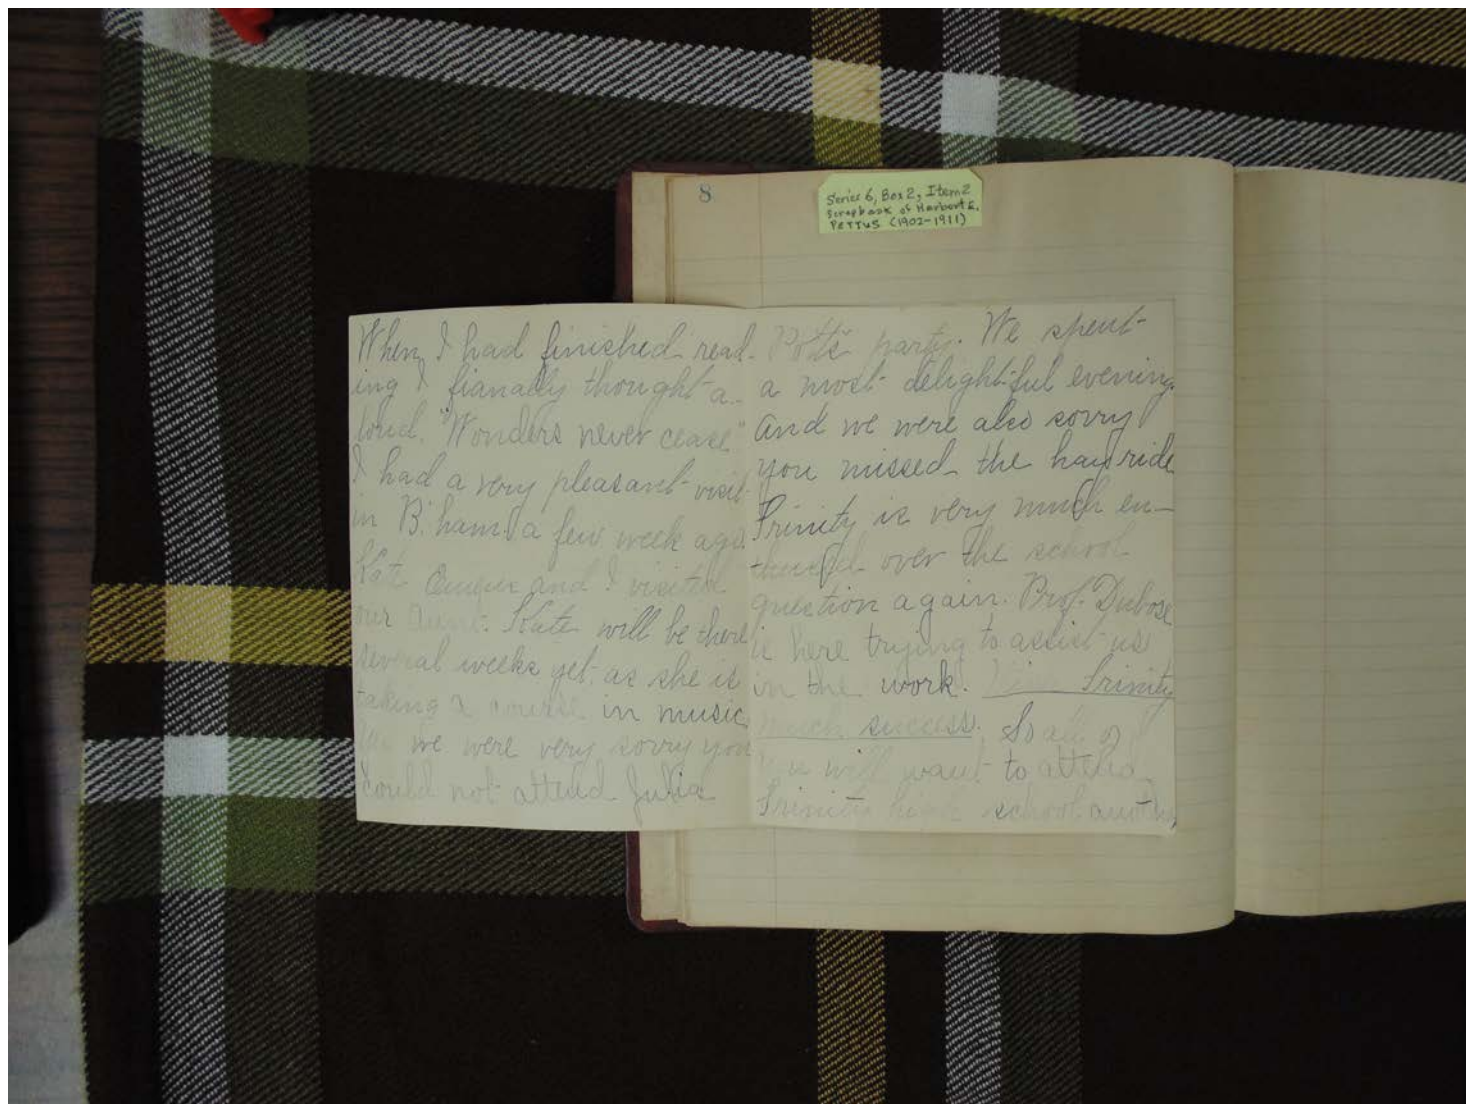 8
Series 6, Box 2, Item 2
Scrapbook of Herbert E.
PETTUS (1902-1911)
When I had finished read-
ing I fianally thought a-
loud. "Wonders never cease"
I had a very pleasant visit
in B'ham. a few week ago.
Kate and I visited
our Aunt. Kate will be there
several weeks yet. as she is
taking a course in music
we were very sorry you
could not attend Julia
Potts party. We spent
a most delightful evening.
and we were also sorry
you missed the hayride
Trinity is very much en-
thused over the school
question again. Prof. Dubose
is here trying to assist us
in the work. Trinity
much success. So all of
you will want to attend
Trinity high school another